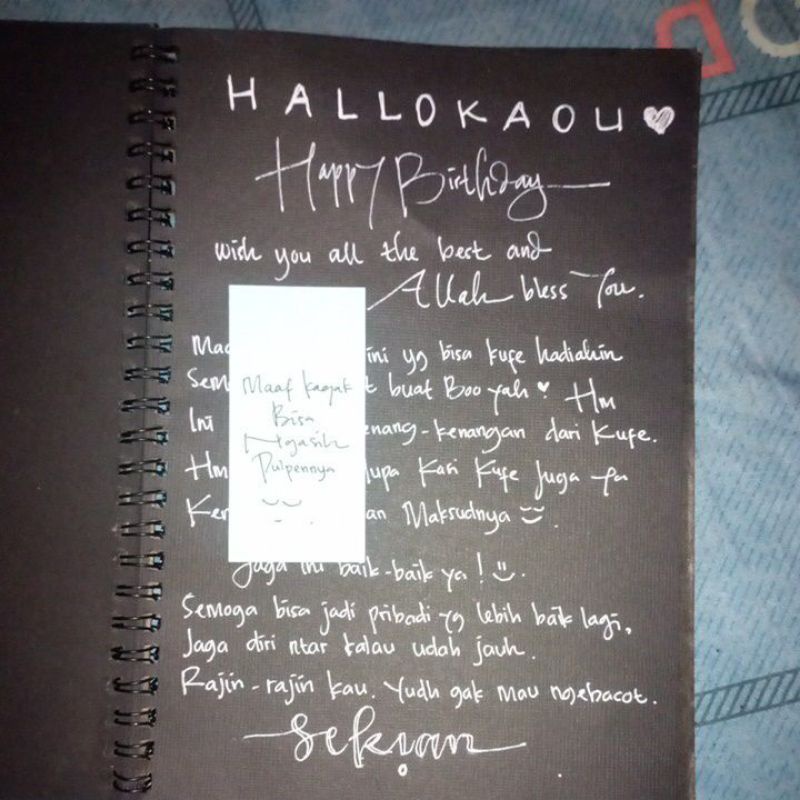 HALLOKAOU
Happy Birthday
wish you all the best and
Allah bless You.
ini yg bisa kufe hadiahin
buat Boo yah
Hm
Ini enang-kenangan dari Kufe.
Hm upa Kasi Kufe Juga ya
Ker an Maksudnya
Maaf kagak
Bisa
Ngasih
Pulpennya
Jaga ini baik-baik ya!
Semoga bisa jadi pribadi yg lebih baik lagi,
Jaga diri ntar kalau udah jauh.
Rajin-rajin kau. Yudh gak mau ngebacot.
Sekian